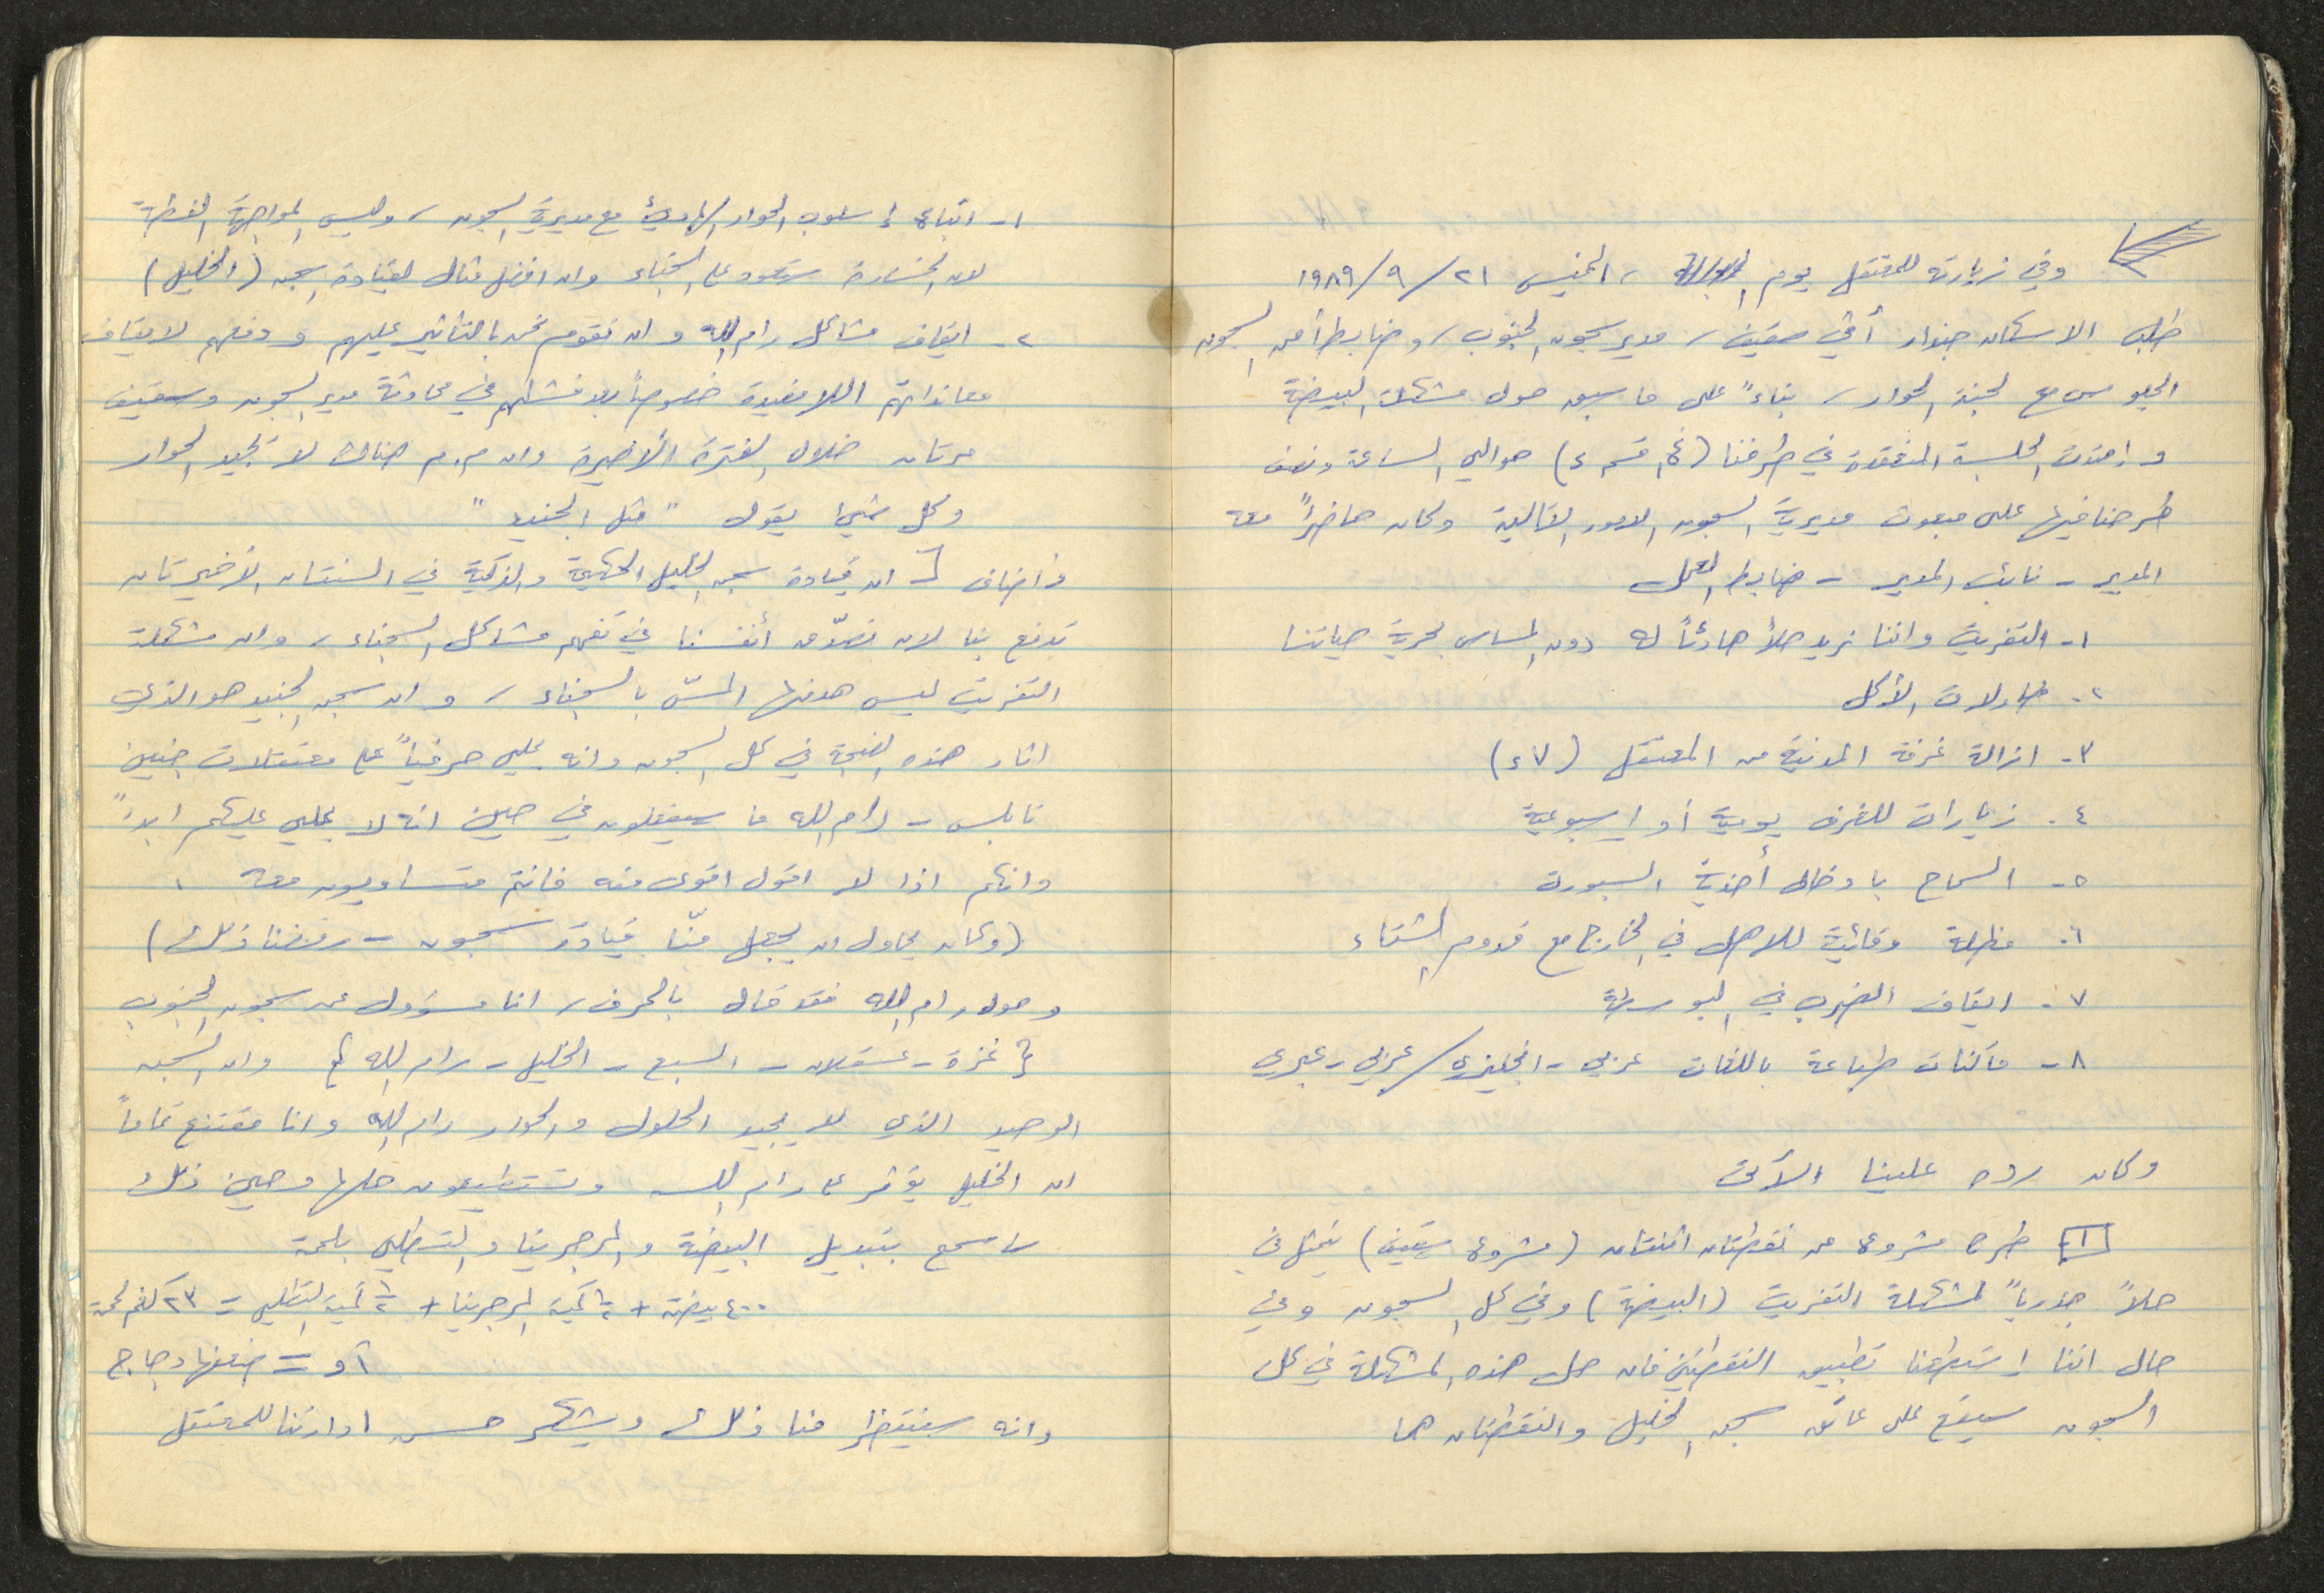 وفي زيارته للمعتقل يوم ، الخميس ٢١/٩/١٩٨٩
طلب الاسكان جندار أفي سقيف، مدير سجون الجنوب، وضابط أمن السجون
الجلوس مع لجنة الحوار، بناءً على ما سبق حول مشكلة البيضة
وامتدت الجلسة المنعقدة في طرفنا (غ١ قسم ٤) حوالي الساعة ونصف
طرحنا فيها على مبعوث مديرية السجون الامور التالية وكان حاضراً معه
المدير - نائب المدير - ضابط العمل
١- التفريت واننا نريد حلاً هادئاً له دون المساس بحرية حياتنا
٢- طاولات الأكل
٣- ازالة غرفة المدنية من المعتقل (٤٧)
٤- زيارات للغرف يومية أو اسبوعية
٥- السماح بادخال أحذية السبورت
٦- مظلة وقائية للاهل في الخارج مع قدوم الشتاء
٧- ايقاف الضرب في البوسطة
٨- ماكنات طباعة باللغات عربي - انجليزي / عربي - عبري
وكان رده علينا الآتي
١- طرح مشروع من نقطتان اثنتان (مشروع سقيف) يتمثل في
حلاً جذرياً لمشكلة التفريت (البيضة) وفي كل السجون وفي
حال اننا استطعنا تطبيق النقطتين فان حل هذه المشكلة في كل
السجون سيقع على عاتق سجن الخليل والنقطتان هما
١- اتباع اسلوب الحوار الهادئ مع مديرية السجون، وليس المواجهة الفظة
لان الخسارة ستعود على السجناء وان افضل مثال لقيادة سجن (الخليل)
٢- ايقاف مشاكل رام الله وان نقوم نحن بالتأثير عليهم ودفعهم لايقاف
معاندتهم اللامفيدة خصوصاً بعد فشلهم في محادثة مدير السجون وسقيف
مرتان خلال الفترة الأخيرة وان م.م هناك لا تجيد الحوار
وكل شيئ يقول "مثل الجنيد"
واضاف [ ان قيادة سجن الخليل الحكيمة والذكية في السنتان الأخيرتان
تدفع بنا لان نصدّق أنفسنا في تفهم مشاكل السجناء، وان مشكلة
التفريت ليس هدفها المسّ بالسجناء، وان سجن الجنيد هو الذي
اثار هذه الضجة في كل السجون وانه يملي حرفياً على معتقلات جنين
نابلس - رام الله ما سيفعلون في حين انه لا يملي عليكم ابداً
وانكم اذا لا اقول اقوى منه فانتم متساويون معه .
(وكان يحاول ان يجعل منّا قيادة سجون - رفضنا ذلك)
وحول رام الله فقد قال بالحرف، انا مسؤول عن سجون الجنوب
{ غزة - عسقلان - السبع - الخليل - رام الله } وان السجن
الوحيد الذي لا يجيد الحلول والحوار رام الله وانا مقتنع تماماً
ان الخليل يؤثر على رام الله وتستطيعون حلها وحين ذلك
سأسمح بتبديل البيضة والمرجرينا والتسطلي بلحمة
٤٠٠ بيضة + ½ كمية المرجرينا + ½ كمية التسطلي = ٢٣ كغم لحمة
أو = ضعفها دجاج
وانه سينتظر منا ذلك ويشكر حسن ادارتنا للمعتقل